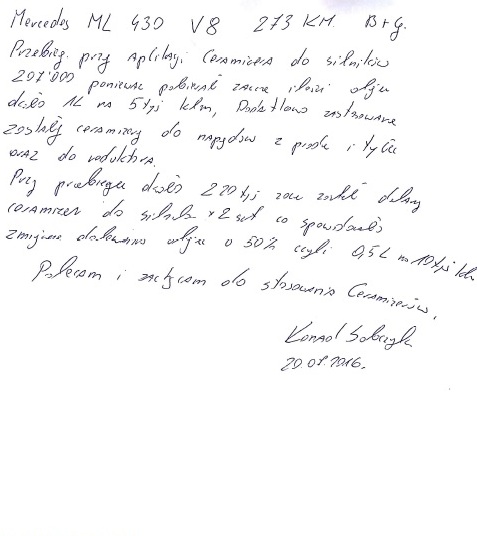 Mercedes ML 430 V8 273 KM. B+G.
Przebieg przy aplikacji Ceramizera do silników
207'000 ponieważ pobierał znaczne ilości oleju
około 1L na 5 tyś klm, Dodatkowo zastosowane
zostały ceramizery do napędów z przodu i tyłu
oraz do reduktora.
Przy przebiegu około 220 tyś został dolany
ceramizer do silnika x 2 szt co spowodowało
zmniejszenie dolewania oleju o 50% czyli 0,5L na 10 tyś klm
Polecam i zachęcam do stosowania Ceramizerów.
Konrad
2016.